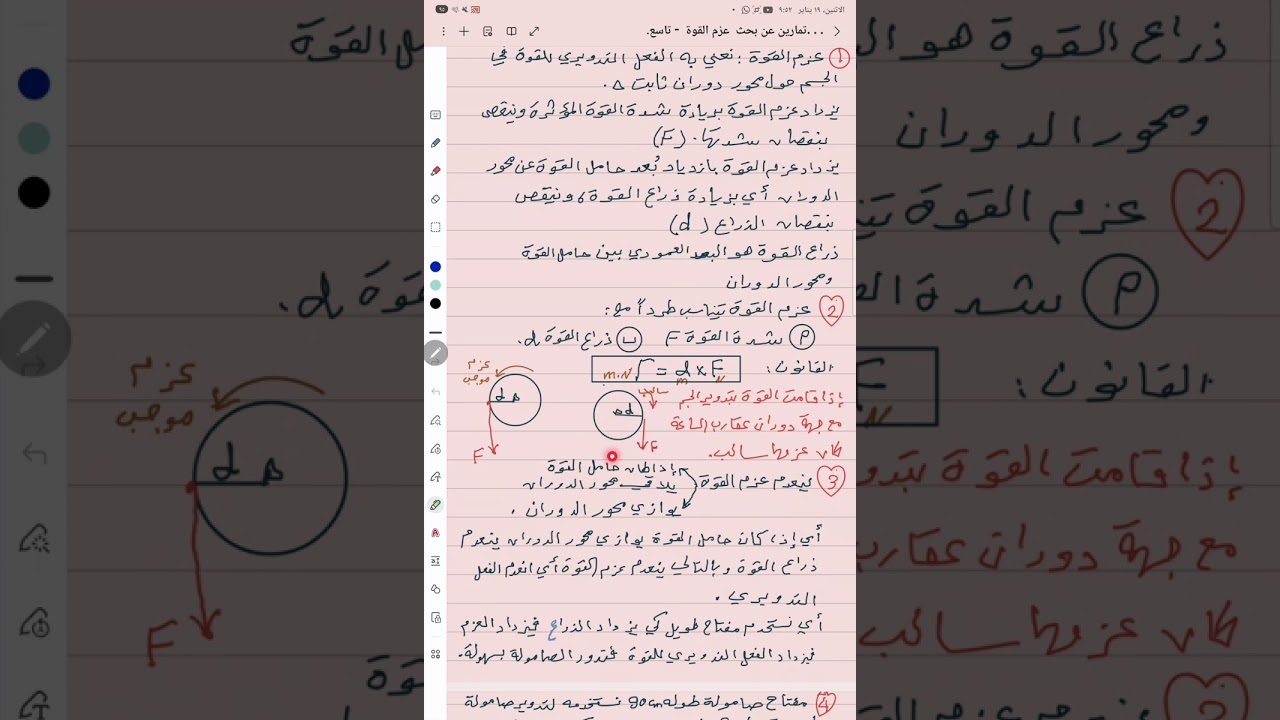 الاثنين، ١٩ يناير ٩:٥٢
٩٥
تمارين عن بحث عزم القوة - تاسع...
① عزم القوة: نعني به الفعل التدويري للقوة في
الجسم حول محور دوران ثابت Δ.
يزداد عزم القوة بزيادة شدة القوة المؤثرة وينقص
بنقصان شدتها. (F)
يزداد عزم القوة بازدياد بُعد حامل القوة عن محور
الدوران أي بزيادة ذراع القوة، وينقص
بنقصان الذراع (d)
ذراع القوة هو البعد العمودي بين حامل القوة
ومحور الدوران
2 عزم القوة يتناسب طرداً مع:
P شدة القوة F ب ذراع القوة d.
القانون: Γ = d x F
m.N m N
عزم موجب
d Δ
F
سالب
Δ d
F
إذا قامت القوة بتدوير الجسم
مع جهة دوران عقارب الساعة
كان عزمها سالب.
3 ينعدم عزم القوة إذا كان حامل القوة
يلاقي محور الدوران
يوازي محور الدوران.
أي إذا كان حامل القوة يوازي محور الدوران ينعدم
ذراع القوة وبالتالي ينعدم عزم القوة أي انعدم الفعل
التدويري.
أي نستخدم مفتاح طويل كي يزداد الذراع فيزداد العزم
فيزداد الفعل التدويري للقوة فتدور الصامولة بسهولة.
4 مفتاح صامولة طوله 90cm نستخدمه لتدوير صامولة